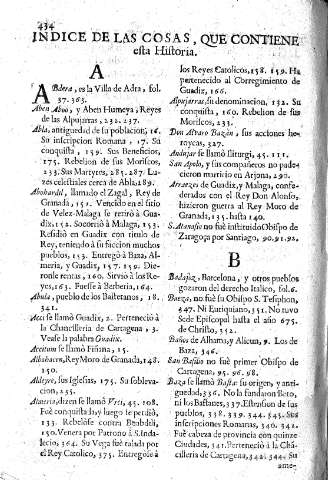 434
INDICE DE LAS COSAS, QUE CONTIENE
esta Historia.
A
ABdera, es la Villa de Adra, fol.
37. 363.
Aben Abuò, y Aben Humeya, Reyes
de las Alpujarras, 232. 237.
Abla, antiguedad de su poblacion, 16.
Su inscripcion Romana, 17. Su
conquista, 159. Sus Beneficios,
175. Rebelion de sus Moriscos,
233. Sus Martyres, 285. 287. Lu-
zes celestiales cerca de Abla, 289.
Abohardil, llamado el Zagal, Rey de
Granada, 151. Vencido en el sitio
de Velez-Malaga se retirò a Gua-
dix, 152. Socorriò a Malaga, 153.
Residiò en Guadix con titulo de
Rey, teniendo à su faccion muchos
pueblos, 153. Entregò a Baza, Al-
meria, y Guadix, 157. 159. Die-
ronle rentas, 160. Sirviò a los Re-
yes, 163. Fuesse à Berberia, 164.
Abula, pueblo de los Bastetanos, 18.
341.
Acci se llamò Guadix, 2. Perteneciò à
la Chancilleria de Cartagena, 3.
Vease la palabra Guadix.
Accitum se llamò Fiñana, 15.
Albabacen, Rey Moro de Granada, 148.
150.
Aldeyre, sus Iglesias, 175. Su subleva-
cion, 235.
Almeria, dizen se llamò Urci, 45. 108.
Fuè conquistada, y luego se perdiò,
133. Rebelòse contra Boabdili,
150. Venera por Patrono à S. Inda-
lecio, 364. Su Vega fuè ralada por
el Rey Catolico, 375. Entregòse à
los Reyes Catolicos, 158. 159. Ha
pertenecido al Corregimiento de
Guadix, 166.
Alpujarras, su denominacion, 132. Su
conquista, 160. Rebelion de sus
Moriscos, 233.
Don Alvaro Bazàn, sus acciones he-
roycas, 327.
Andujar se llamò Iliturgi, 45. 111.
San Apolo, y sus compañeros no pade-
cieron martirio en Arjona, 290.
Arraezes de Guadix, y Malaga, confe-
derados con el Rey Don Alonso,
hizieron guerra al Moro de Grana-
da, 135. hasta 140.
S. Atanasio no fuè instituido Obispo de
Zaragoça por Santiago, 90. 91. 92.
B
Badajoz, Barcelona, y otros pueblos
gozaron del derecho Italico, fol. 6.
Baeza, no fuè su Obispo S. Tesiphon,
347. Ni Eutiquiano, 351. No tuvo
Sede Episcopal hasta el año 675.
de Christo, 352.
Baños de Alhama, y Alicun, 9. Los de
Baza, 346.
San Basilio no fuè primer Obispo de
Cartagena, 95. 96. 98.
Baza se llamò Basta: su origen, y anti-
guedad, 336. No la fundaron Beto,
ni los Bastules, 337. Estension de sus
pueblos, 338. 339. 344. 345. Sus
inscripciones Romanas, 340. 342.
Fuè cabeza de provincia con quinze
Ciudades, 341. Perteneciò à la Chã-
cilleria de Cartagena, 342. 344. Su
ame-